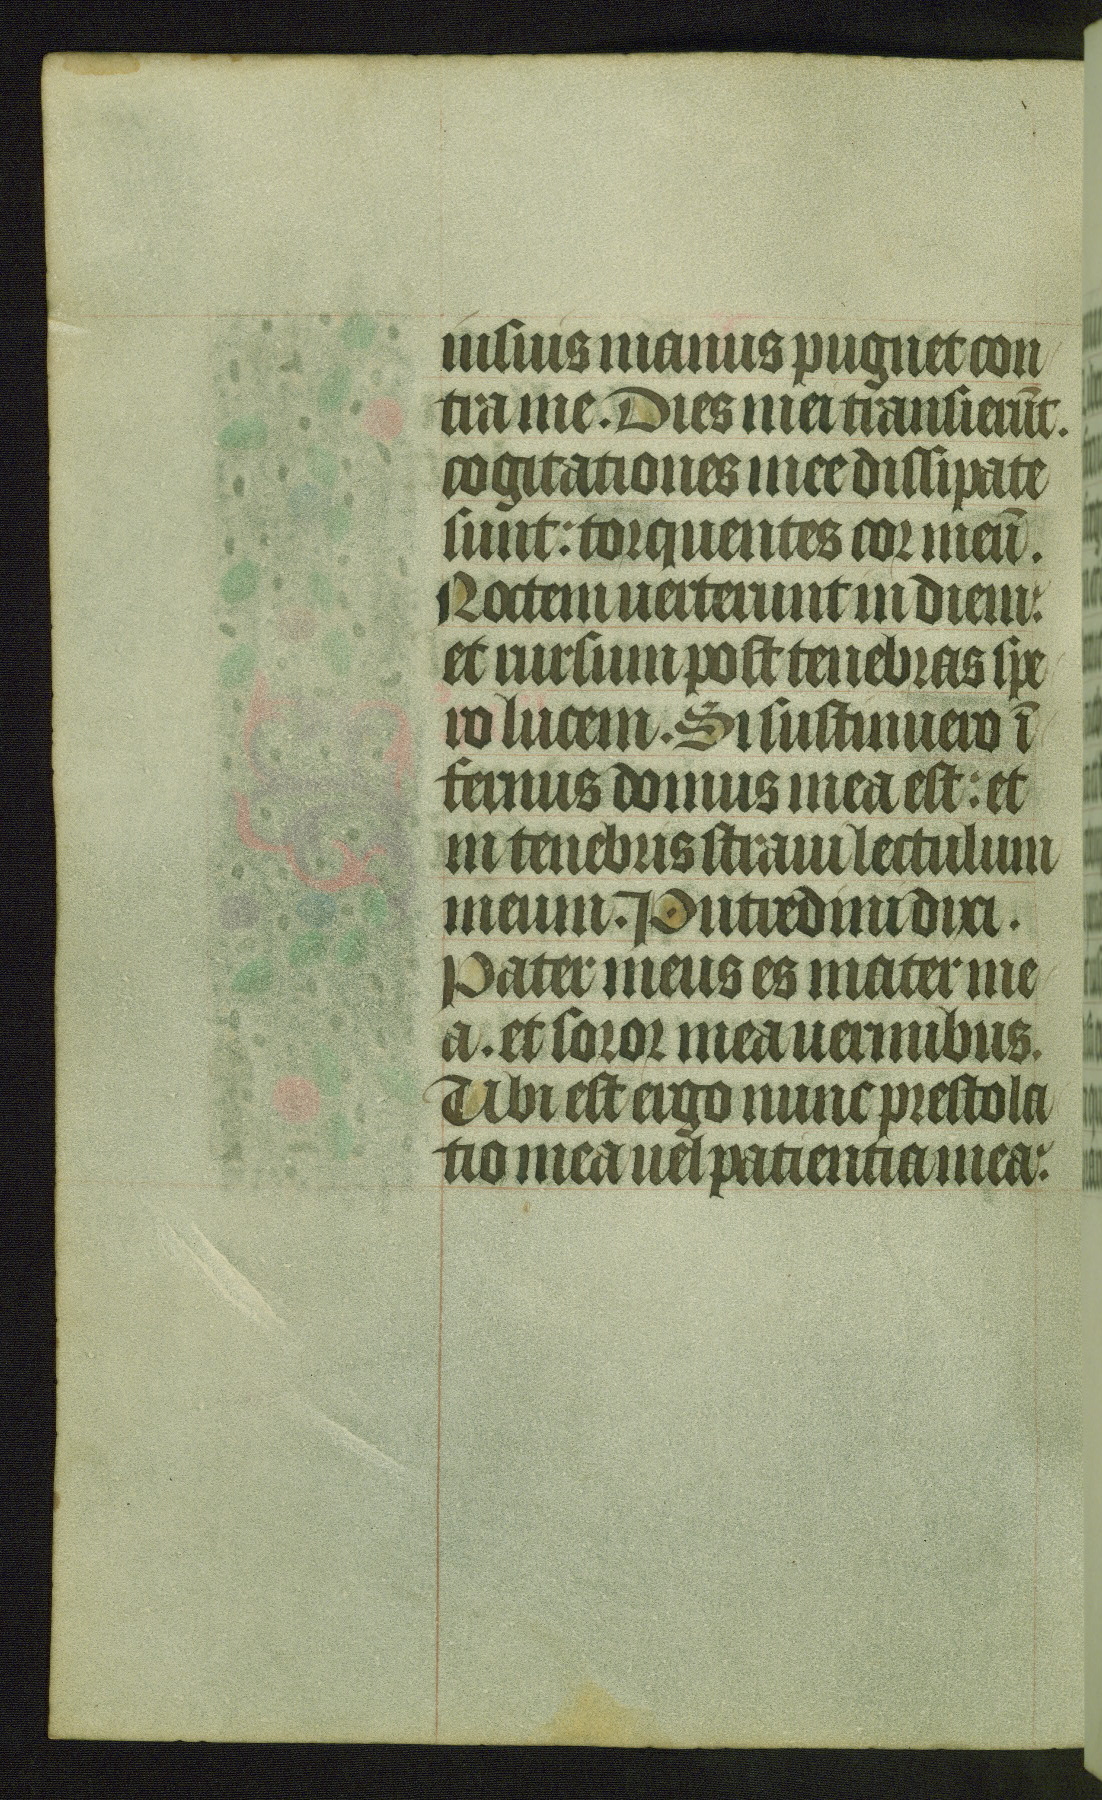 iusiuis manus pugnet con
tra me. Dies mei transierūt.
cogitationes mee dissipate
sunt: torquentes cor meū.
Noctem uerterunt in diem:
et rursum post tenebras spe
ro lucem. Si sustinuero ī
fernus domus mea est: et
in tenebris straui lectulum
meum. Putredini dixi.
Pater meus es mater me
a. et soror mea uermibus.
Ubi est ergo nunc prestola
tio mea uel patientia mea: